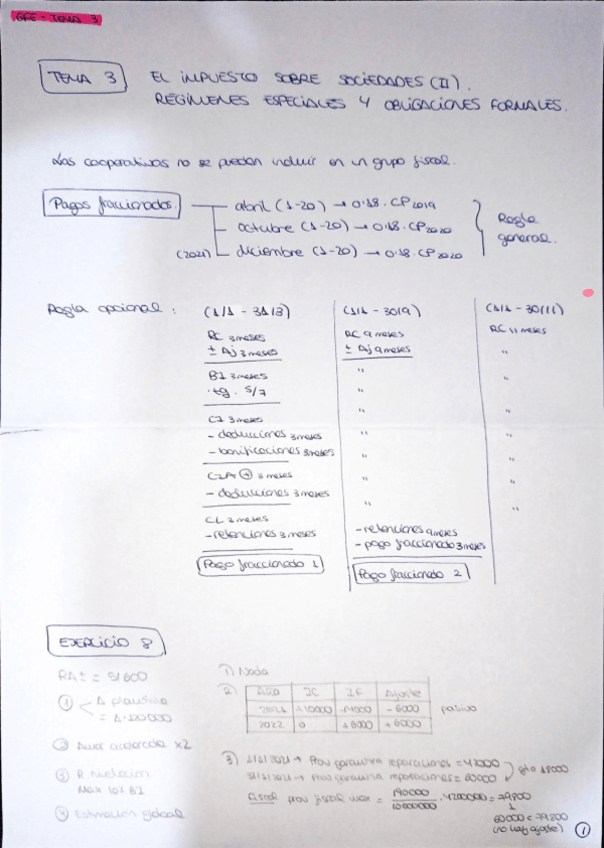 GFE - TEMA 3
TEMA 3 EL IMPUESTO SOBRE SOCIEDADES (II).
REGÍMENES ESPECIALES Y OBLIGACIONES FORMALES.
Las cooperativas no se pueden incluir en un grupo fiscal.
Pagos fraccionados abril (1-20) → 0'18. CP2019
octubre (1-20) → 0'18. CP2020
(2021) diciembre (1-20) → 0'18. CP2020
Regla
general.
Regla opcional : (1/1 - 31/3) (1/1 - 30/9) (1/1 - 30/11)
RC 3 meses RC 9 meses RC 11 meses
± Aj 3 meses ± Aj 9 meses "
BI 3 meses " "
· tg. 5/7 " "
CI 3 meses " "
- deducciones 3 meses " "
- bonificaciones 3 meses " "
CIA ⊕ 3 meses " "
- deducciones 3 meses " "
CL 3 meses
- retenciones 3 meses - retenciones 9 meses
- pago fraccionado 3 meses
Pago fraccionado 1 Pago fraccionado 2
EJERCICIO 8
1) Nada
2) Año IC IF Ajuste
2021 - 6000 pasivo
2022 0 +6000 +6000
② Amor acelerada x2
Max 10% BI
④ Estimación global
3) 1/1/2021 → Prov garantía reparaciones = 42000
31/12/2021 → Prov garantía reparaciones = 60000
gto 18000
Fiscal prov fiscal max = 190000 / 10000000 · 4200000 = 79800
60000 < 79800
(no hay ajuste)
1